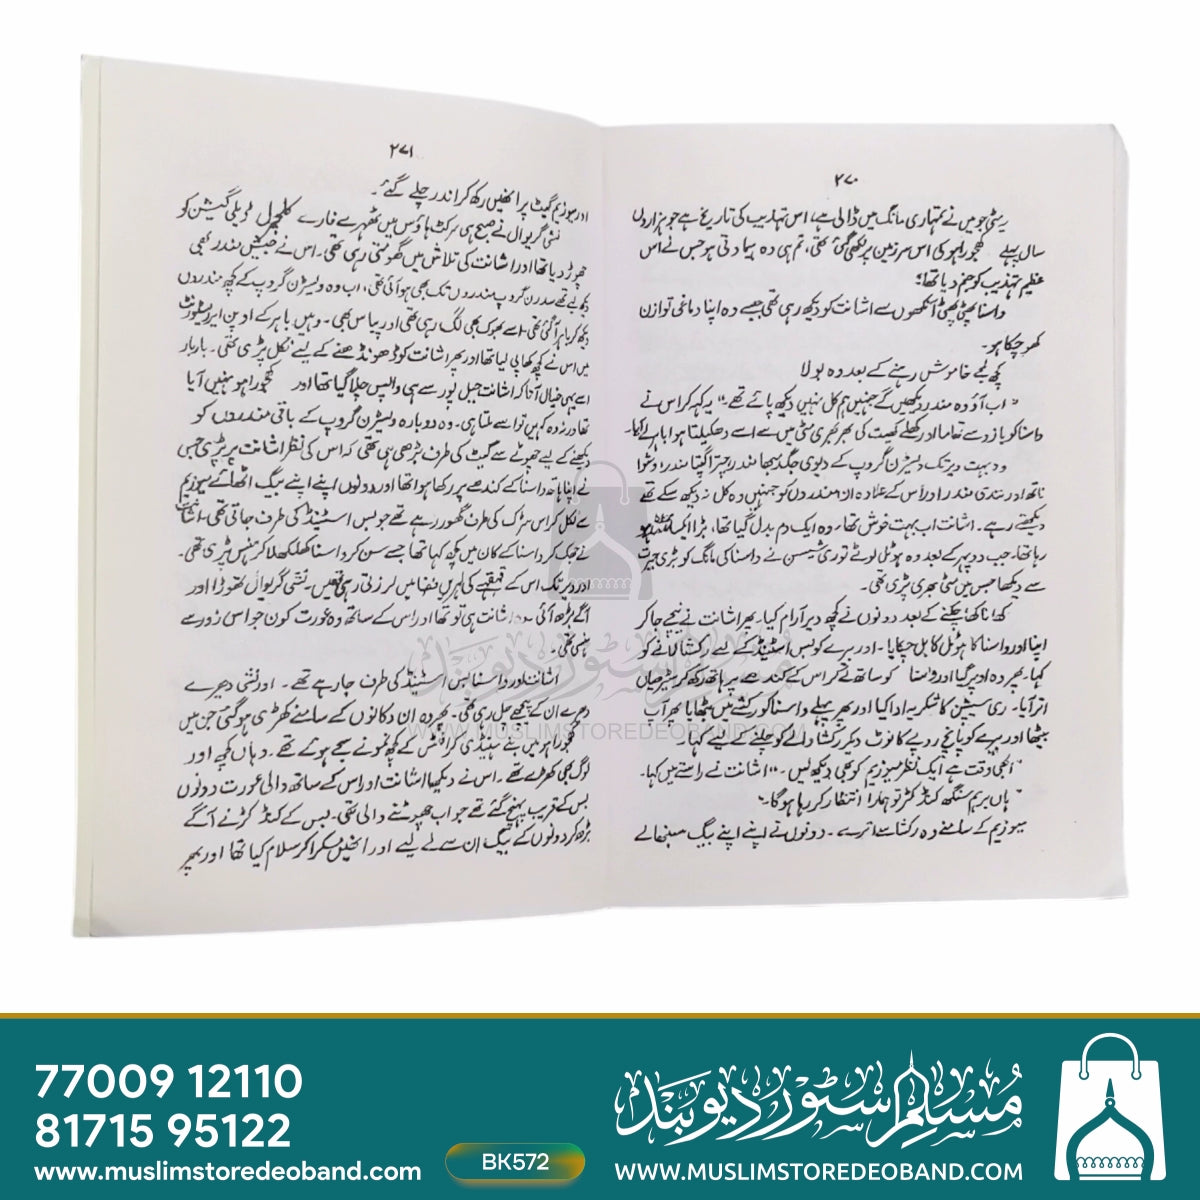 ۲۷۰
ریٹی جو میں نے تمہاری مانگ میں ڈالی ہے، اس تہذیب کی تاریخ ہے جو ہزاروں
سال پہلے کھجوراہو کی اس سرزمین پر لکھی گئی تھی، تم ہی وہ پیما دتی ہو جس نے اس
عظیم تہذیب کو جنم دیا تھا؛
واسنا پھٹی پھٹی آنکھوں سے اشانت کو دیکھ رہی تھی جیسے وہ اپنا دماغی توازن
کھو چکا ہو۔
کچھ لمحے خاموش رہنے کے بعد وہ بولا
"اب آؤ وہ مندر دیکھیں گے جنہیں ہم کل نہیں دیکھ پائے تھے۔" یہ کہہ کر اس نے
واسنا کو بازو سے تھاما اور کھلے کھیت کی بھربھری مٹی میں سے اسے دھکیلتا ہوا باہر لے آیا۔
وہ بہت دیر تک ویسٹرن گروپ کے دیوی جگدمبھا مندر، چترا گپتا مندر، وشوا
ناتھ اور نندی مندر اور اس کے علاوہ ان مندروں کو جنہیں وہ کل نہ دیکھ سکے تھے
دیکھتے رہے۔ اشانت اب بہت خوش تھا۔ وہ ایک دم بدل گیا تھا، بڑا ایکسائیٹڈ ہو
رہا تھا۔ جب دوپہر کے بعد وہ ہوٹل لوٹے تو ری شیپسن نے واسنا کی مانگ کو بڑی حیرت
سے دیکھا جس میں مٹی بھری پڑی تھی۔
کھانا کھا چکنے کے بعد دونوں نے کچھ دیر آرام کیا۔ پھر اشانت نے نیچے جا کر
اپنا اور واسنا کا ہوٹل کا بل چکایا۔ اور بیرے کو بس اسٹینڈ کے لیے رکشا لانے کو
کہا۔ پھر وہ اوپر گیا اور واسنا کو ساتھ لے کر اس کے کندھے پر ہاتھ رکھ کر سیڑھیاں
اتر آیا۔ ری سیپشن کا شکریہ ادا کیا اور پھر پہلے واسنا کو رکشے میں بٹھایا پھر آپ
بیٹھا اور بیرے کو پانچ روپے کا نوٹ دیکر رکشا والے کو چلنے کے لیے کہا۔
"ابھی وقت ہے ایک نظر میوزیم کو بھی دیکھ لیں۔" اشانت نے راستے میں کہا۔
"ہاں بریم سنگھ کنڈکٹر تو ہمارا انتظار کر رہا ہو گا۔"
میوزیم کے سامنے وہ رکشا سے اترے۔ دونوں نے اپنے اپنے بیگ سنبھالے
۲۷۱
اور میوزیم گیٹ پر انہیں رکھ کر اندر چلے گئے۔
نشی گریوال نے صبح ہی سرکٹ ہاؤس میں ٹھہرے فارے کلچرل ڈیلی گیشن کو
چھوڑ دیا تھا اور اشانت کی تلاش میں گھومتی رہی تھی۔ اس نے جتنے مندر بھی
دیکھے تھے سدرن گروپ مندروں تک بھی ہو آئی تھی، اب وہ ویسٹرن گروپ کے کچھ مندروں
دیکھ کر باہر آ گئی تھی۔ اسے بھوک بھی لگ رہی تھی اور پیاس بھی۔ وہیں باہر کے اوپن ایر ریسٹورنٹ
میں اس نے کچھ کھا پی لیا تھا اور پھر اشانت کو ڈھونڈھنے کے لیے نکل پڑی تھی۔ بار بار
اسے یہی خیال آتا کہ اشانت جبل پور سے ہی واپس چلا گیا تھا اور کھجوراہو نہیں آیا
تھا ورنہ وہ کہیں تو اسے ملتا ہی۔ وہ دوبارہ ویسٹرن گروپ کے باقی مندروں کو
دیکھنے کے لیے چھوٹے سے گیٹ کی طرف بڑھی ہی تھی کہ اس کی نظر اشانت پر پڑی جس
نے اپنا ہاتھ واسنا کے کندھے پر رکھا ہوا تھا اور دونوں اپنے اپنے بیگ اٹھائے میوزیم
سے نکل کر اس سڑک کی طرف گھور رہے تھے جو بس اسٹینڈ کی طرف جاتی تھی۔ اشانت
نے جھک کر واسنا کے کان میں کچھ کہا تھا جسے سن کر واسنا کھلکھلا کر ہنس پڑی تھی۔
اور دیر تک اس کے قہقہے کی لہریں فضا میں لرزتی رہی تھیں۔ نشی گریوال تھوڑا اور
آگے بڑھ آئی اشانت ہی تو تھا اور اس کے ساتھ وہ عورت کون جو اس زور سے
ہنسی تھی۔
اشانت اور واسنا بس اسٹینڈ کی طرف جا رہے تھے۔ اور نشی دھیرے
دھیرے ان کے پیچھے چل رہی تھی۔ پھر وہ ان دکانوں کے سامنے کھڑی ہو گئی جن میں
کھجوراہو میں بنے ہینڈی کرافٹس کے کچھ نمونے سجے ہوئے تھے۔ وہاں کچھ اور
لوگ بھی کھڑے تھے۔ اس نے دیکھا اشانت اور اس کے ساتھ والی عورت دونوں
بس کے قریب پہنچ گئے تھے جو اب چھوٹنے والی تھی۔ بس کے کنڈکٹر نے آگے
بڑھ کر دونوں کے بیگ ان سے لے لیے اور انہیں مسکرا کر سلام کیا تھا اور پھر
مسلم سٹور دیوبند
WWW.MUSLIMSTOREDEOBAND.COM
77009 12110
81715 95122
www.muslimstoredeoband.com
BK572
مسلم سٹور دیوبند
WWW.MUSLIMSTOREDEOBAND.COM